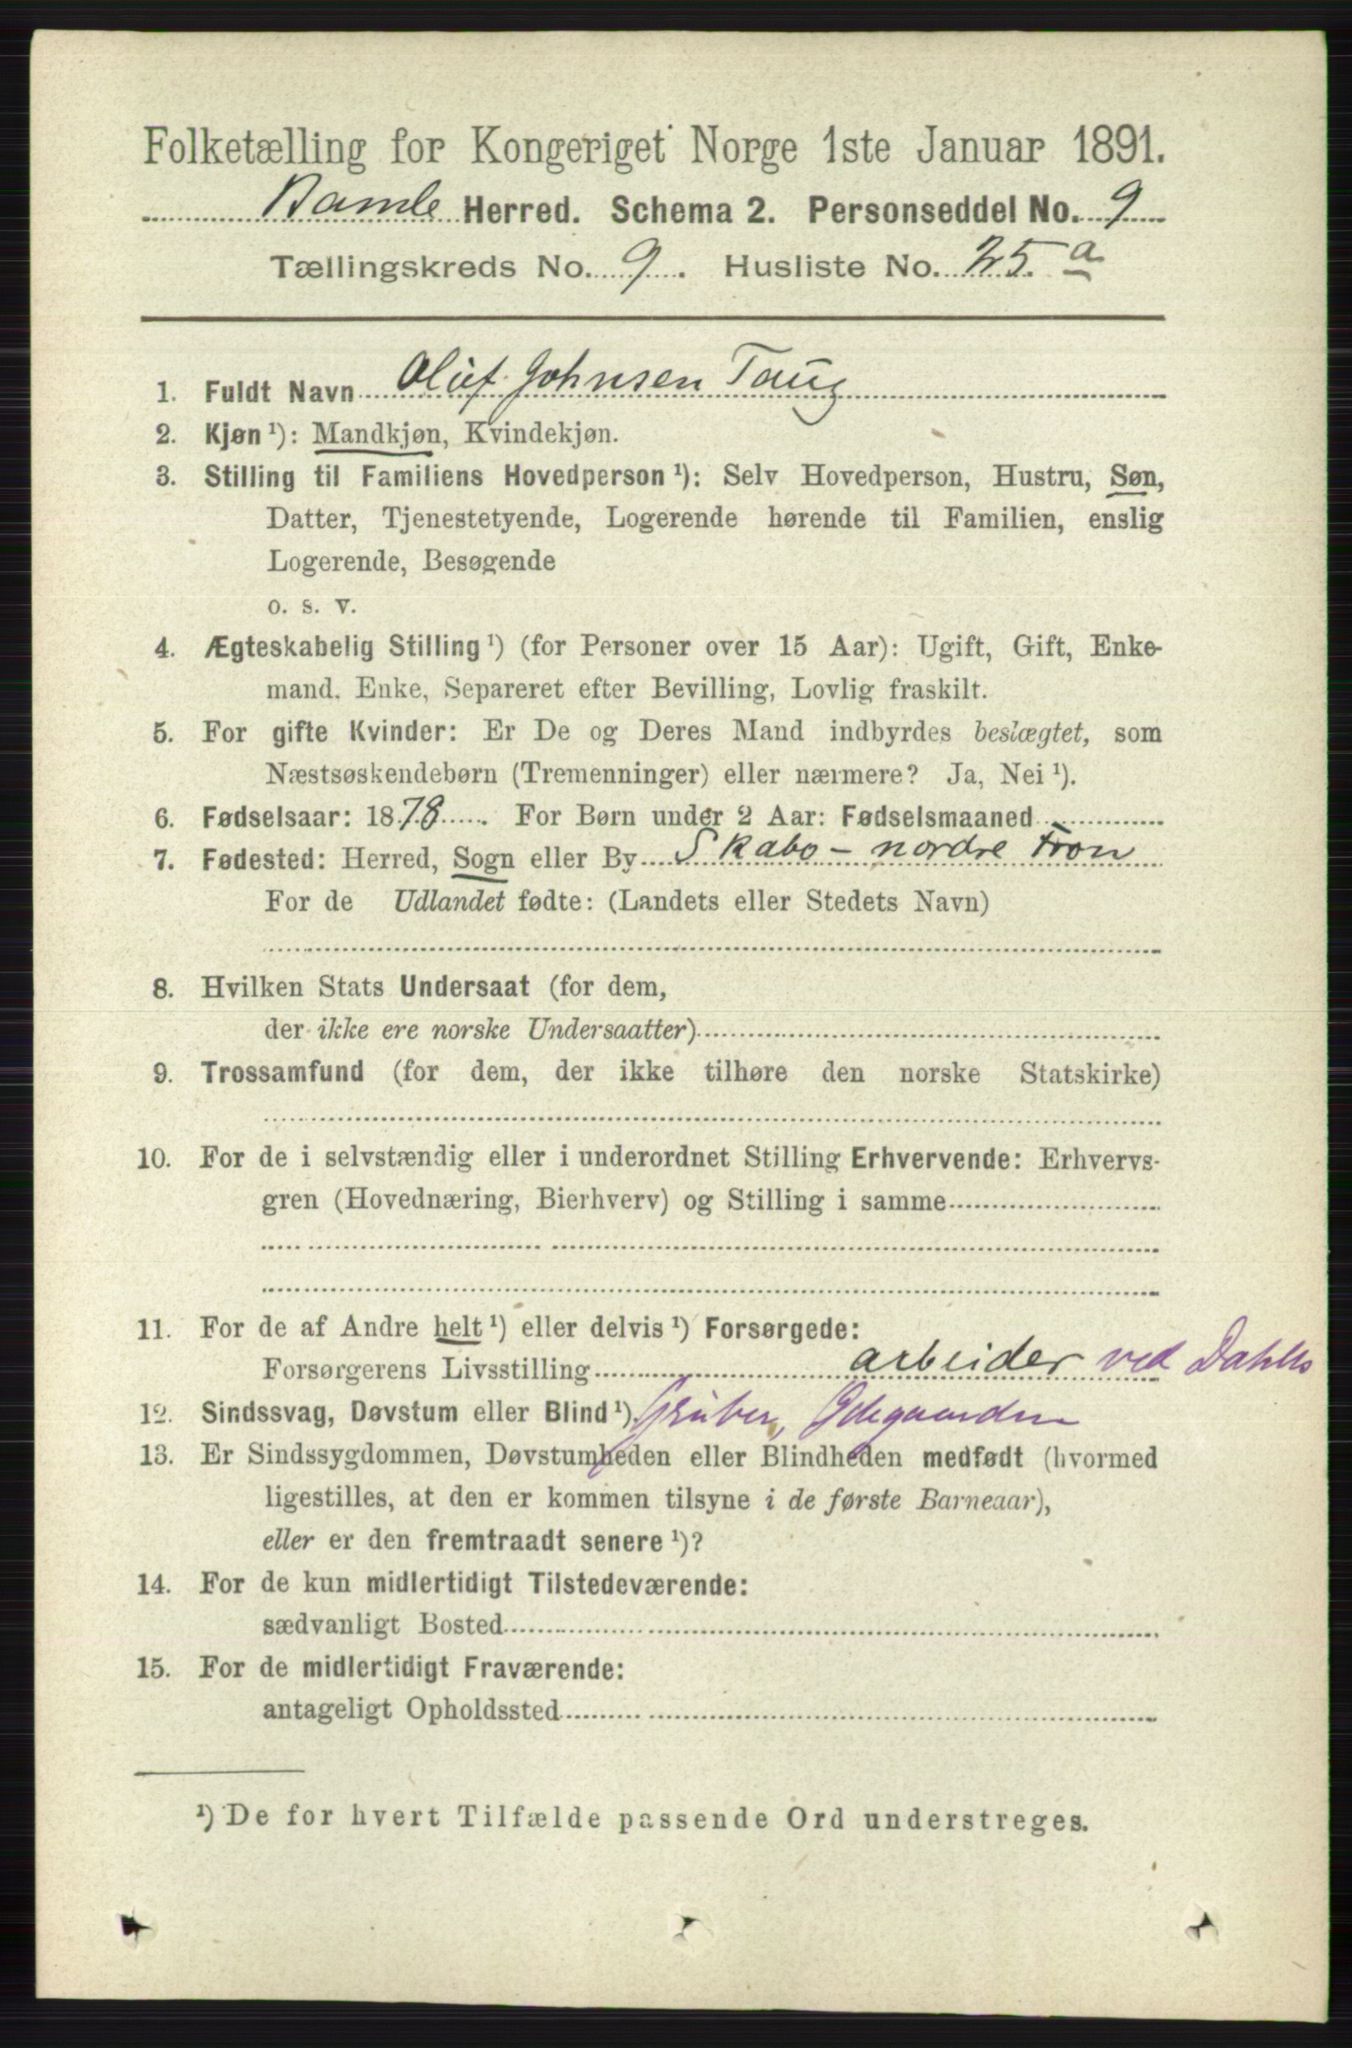 Folketælling for Kongeriget Norge 1ste Januar 1891.
Bamle Herred. Schema 2. Personseddel No. 9
Tællingskreds No. 9. Husliste No. 25.a
1. Fuldt Navn Oluf Johnsen Taug
2. Kjøn ¹): Mandkjøn, Kvindekjøn.
3. Stilling til Familiens Hovedperson ¹): Selv Hovedperson, Hustru, Søn,
Datter, Tjenestetyende, Logerende hørende til Familien, enslig
Logerende, Besøgende
o. s. v.
4. Ægteskabelig Stilling ¹) (for Personer over 15 Aar): Ugift, Gift, Enke-
mand. Enke, Separeret efter Bevilling, Lovlig fraskilt.
5. For gifte Kvinder: Er De og Deres Mand indbyrdes beslægtet, som
Næstsøskendebørn (Tremenninger) eller nærmere? Ja, Nei ¹).
6. Fødselsaar: 1878. For Børn under 2 Aar: Fødselsmaaned
7. Fødested: Herred, Sogn eller By Skabo - nordre Fron
For de Udlandet fødte: (Landets eller Stedets Navn)
8. Hvilken Stats Undersaat (for dem,
der ikke ere norske Undersaatter)
9. Trossamfund (for dem, der ikke tilhøre den norske Statskirke)
10. For de i selvstændig eller i underordnet Stilling Erhvervende: Erhvervs-
gren (Hovednæring, Bierhverv) og Stilling i samme
11. For de af Andre helt ¹) eller delvis ¹) Forsørgede:
Forsørgerens Livsstilling arbeider ved Dahlls
12. Sindssvag, Døvstum eller Blind ¹). Gruber, Ødegaarden
13. Er Sindssygdommen, Døvstumheden eller Blindheden medfødt (hvormed
ligestilles, at den er kommen tilsyne i de første Barneaar),
eller er den fremtraadt senere ¹)?
14. For de kun midlertidigt Tilstedeværende:
sædvanligt Bosted
15. For de midlertidigt Fraværende:
antageligt Opholdssted
¹) De for hvert Tilfælde passende Ord understreges.